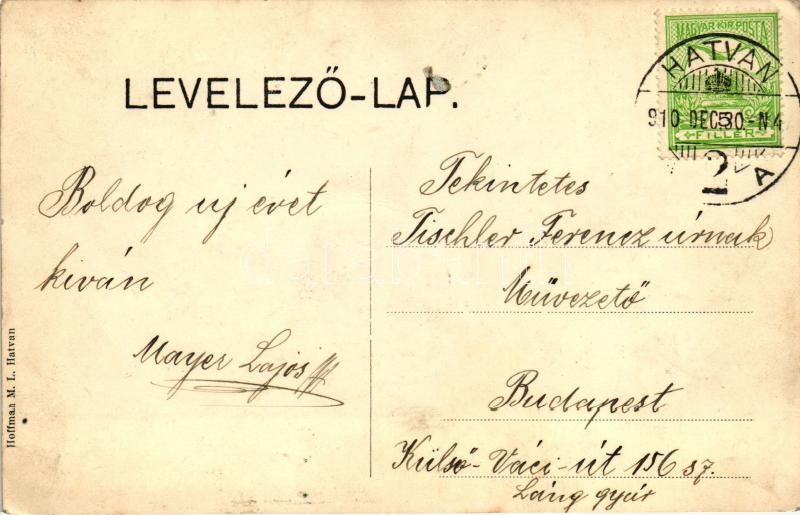 LEVELEZŐ-LAP.
MAGYAR KIR. POSTA
HATVAN
910 DEC 30 - N4
5
FILLÉR
2
A
Boldog uj évet
kiván
Mayer Lajos
Tekintetes
Tischler Ferencz úrnak
Művezető
Budapest
Külső-Váci-út 156 sz.
Láng gyár
Hoffman M. L., Hatvan